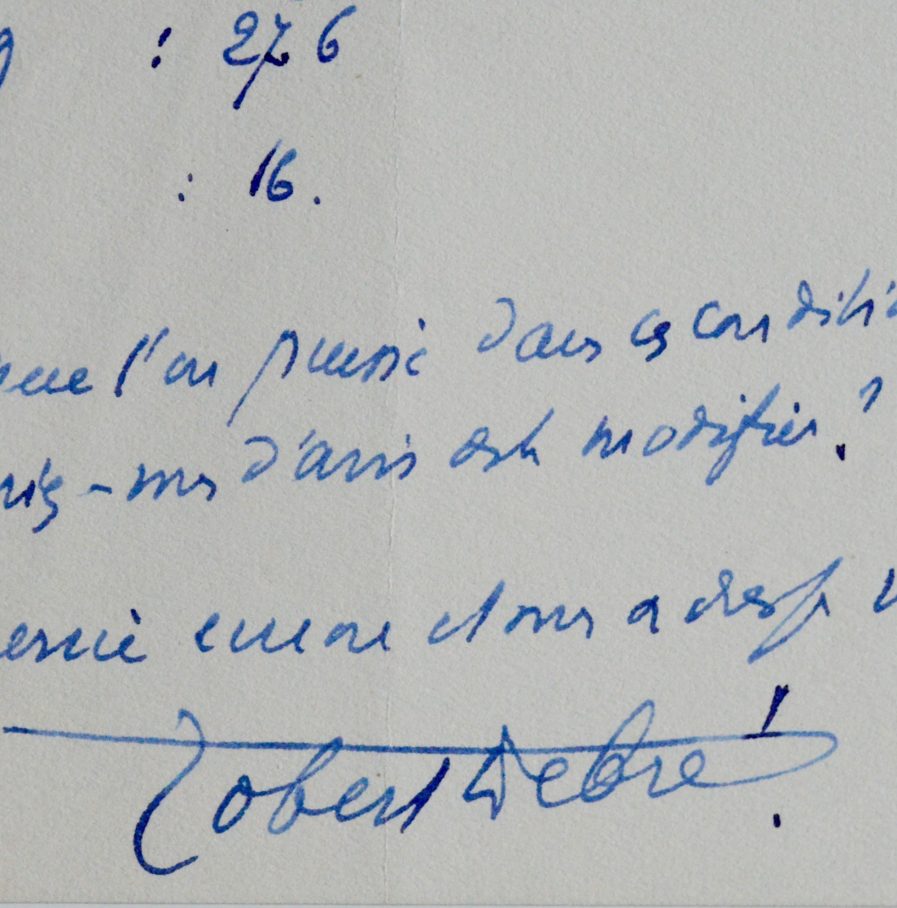 : 276
: 16.
l'on puisse dans ces conditi
-vous d'avis de le modifier ?
encore et vous adresse
Robert Debré